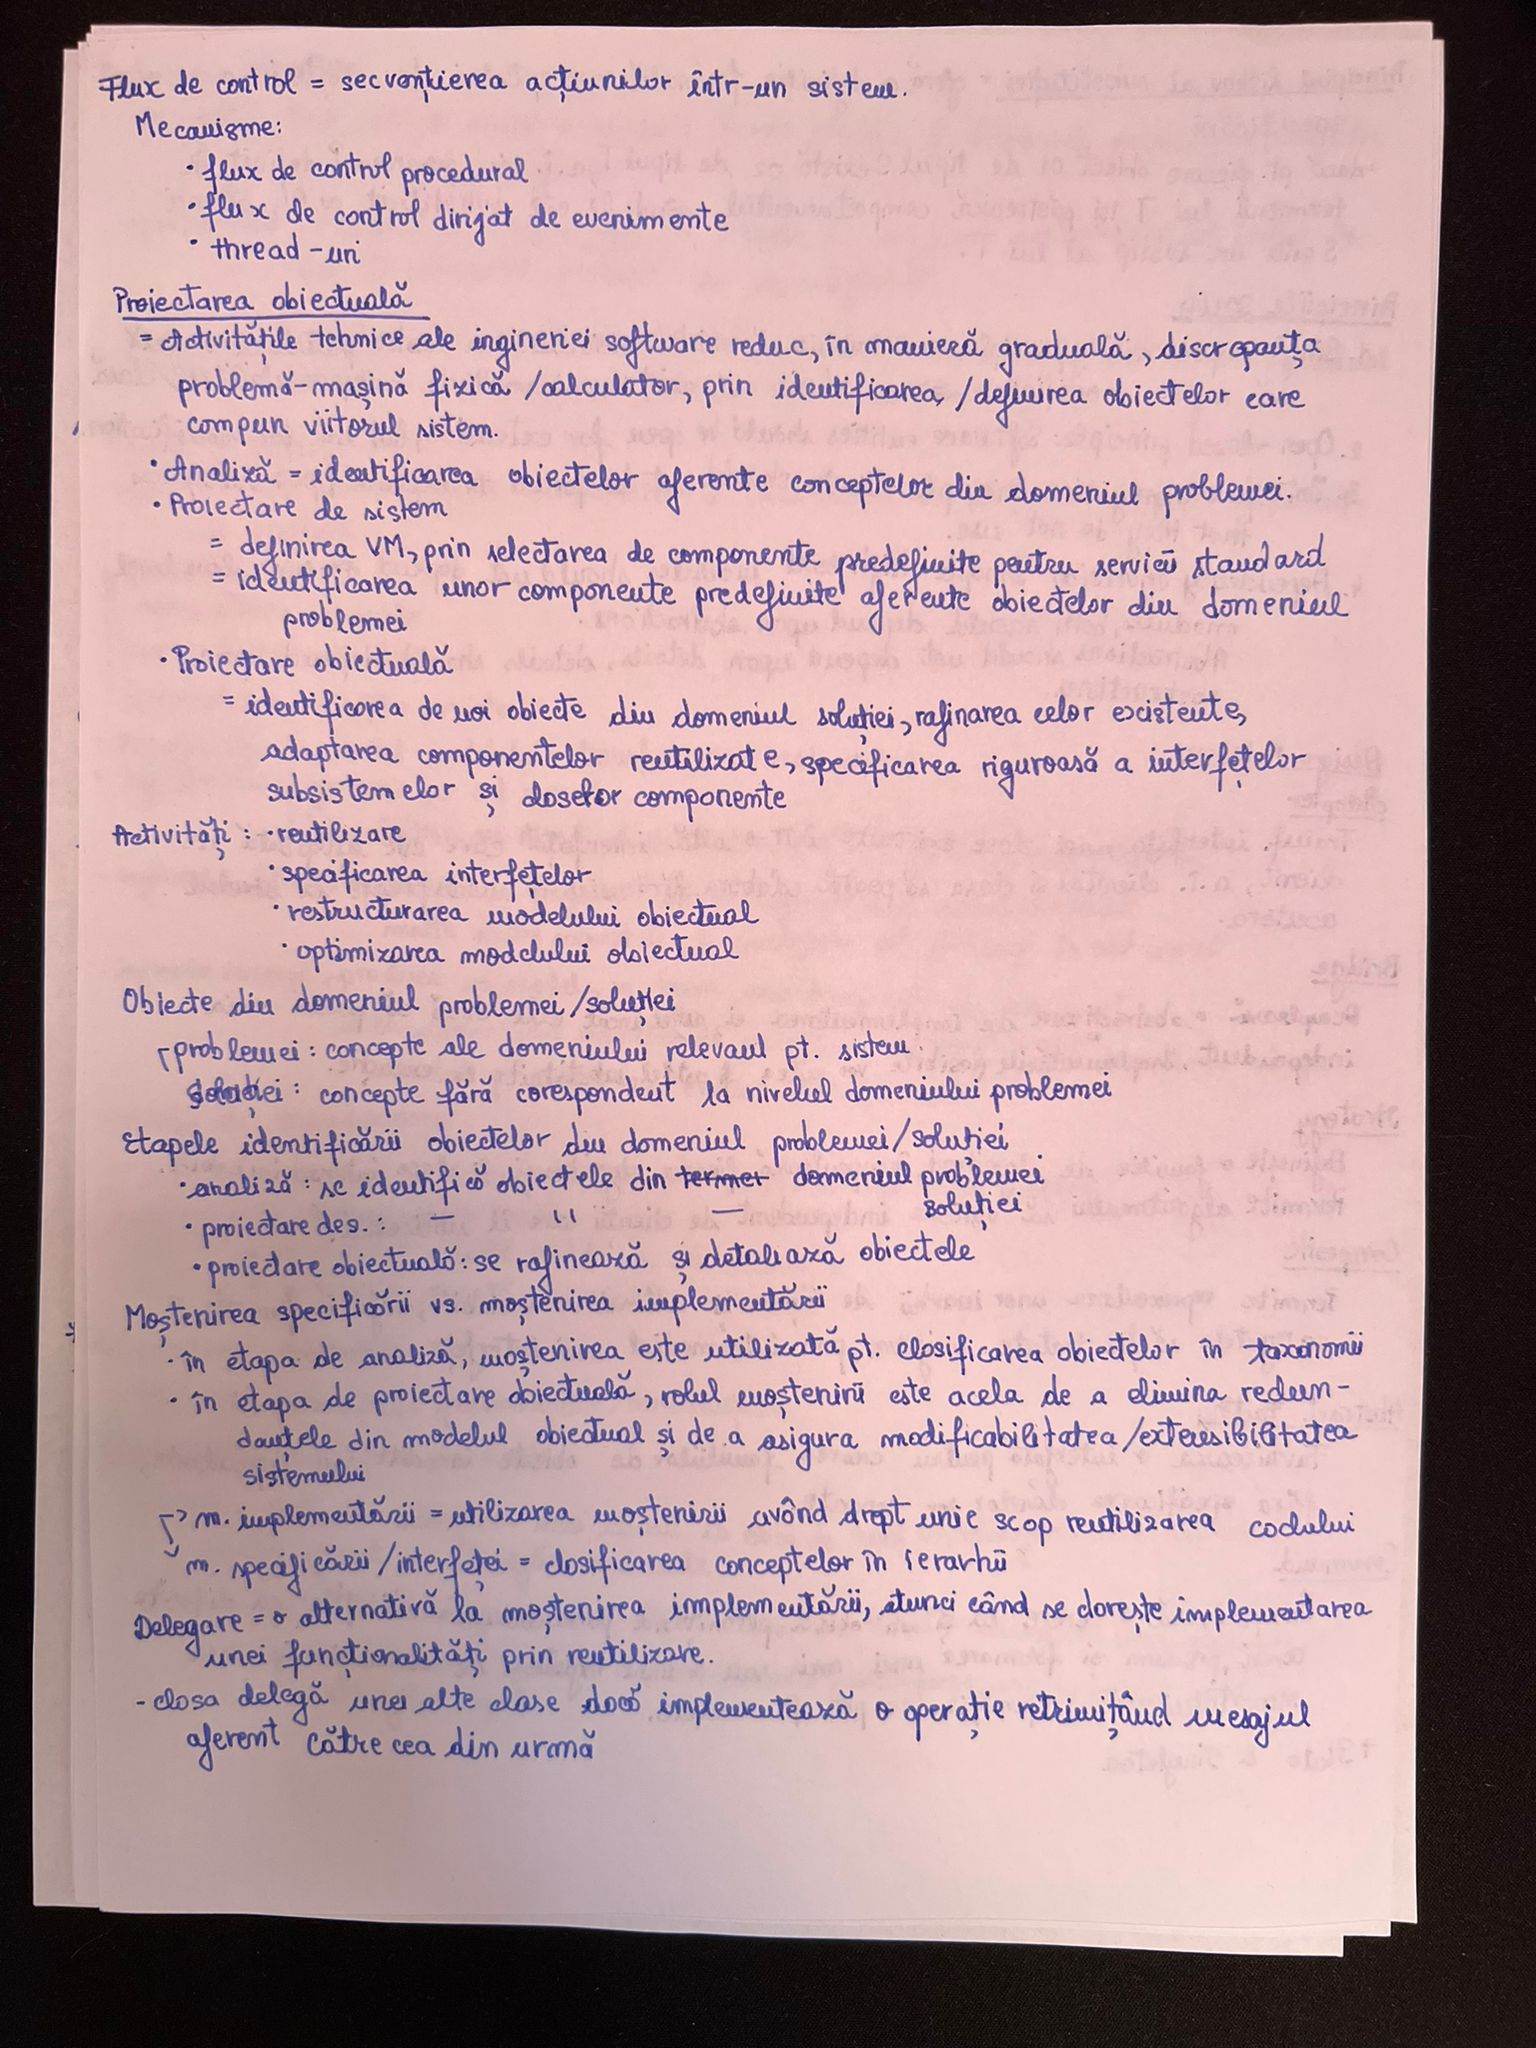 Flux de control = secvențierea acțiunilor într-un sistem.
Mecanisme:
• flux de control procedural
• flux de control dirijat de evenimente
• thread-uri
Proiectarea obiectuală
= Activitățile tehnice ale ingineriei software reduc, în manieră graduală, discrepanța
problemă-mașină fizică /calculator, prin identificarea /definirea obiectelor care
compun viitorul sistem.
• Analiză = identificarea obiectelor aferente conceptelor din domeniul problemei.
• Proiectare de sistem
= definirea VM, prin selectarea de componente predefinite pentru servicii standard
= identificarea unor componente predefinite aferente obiectelor din domeniul
problemei
• Proiectare obiectuală
= identificarea de noi obiecte din domeniul soluției, rafinarea celor existente,
adaptarea componentelor reutilizate, specificarea riguroasă a interfețelor
subsistemelor și claselor componente
Activități: • reutilizare
• specificarea interfețelor
• restructurarea modelului obiectual
• optimizarea modelului obiectual
Obiecte din domeniul problemei/soluției
problemei: concepte ale domeniului relevant pt. sistem
soluției: concepte fără corespondent la nivelul domeniului problemei
Etapele identificării obiectelor din domeniul problemei/soluției
• analiză: se identifică obiectele din termer domeniul problemei
• proiectare de s.: — " — soluției
• proiectare obiectuală: se rafinează și detaliază obiectele
Moștenirea specificării vs. moștenirea implementării
• în etapa de analiză, moștenirea este utilizată pt. clasificarea obiectelor în taxonomii
• în etapa de proiectare obiectuală, rolul moștenirii este acela de a elimina redun-
danțele din modelul obiectual și de a asigura modificabilitatea /extensibilitatea
sistemului
m. implementării = utilizarea moștenirii având drept unic scop reutilizarea codului
m. specificării/interfeței = clasificarea conceptelor în ierarhii
Delegare = o alternativă la moștenirea implementării, atunci când se dorește implementarea
unei funcționalități prin reutilizare.
- clasa delegă unei alte clase dacă implementează o operație retrimițând mesajul
aferent către cea din urmă